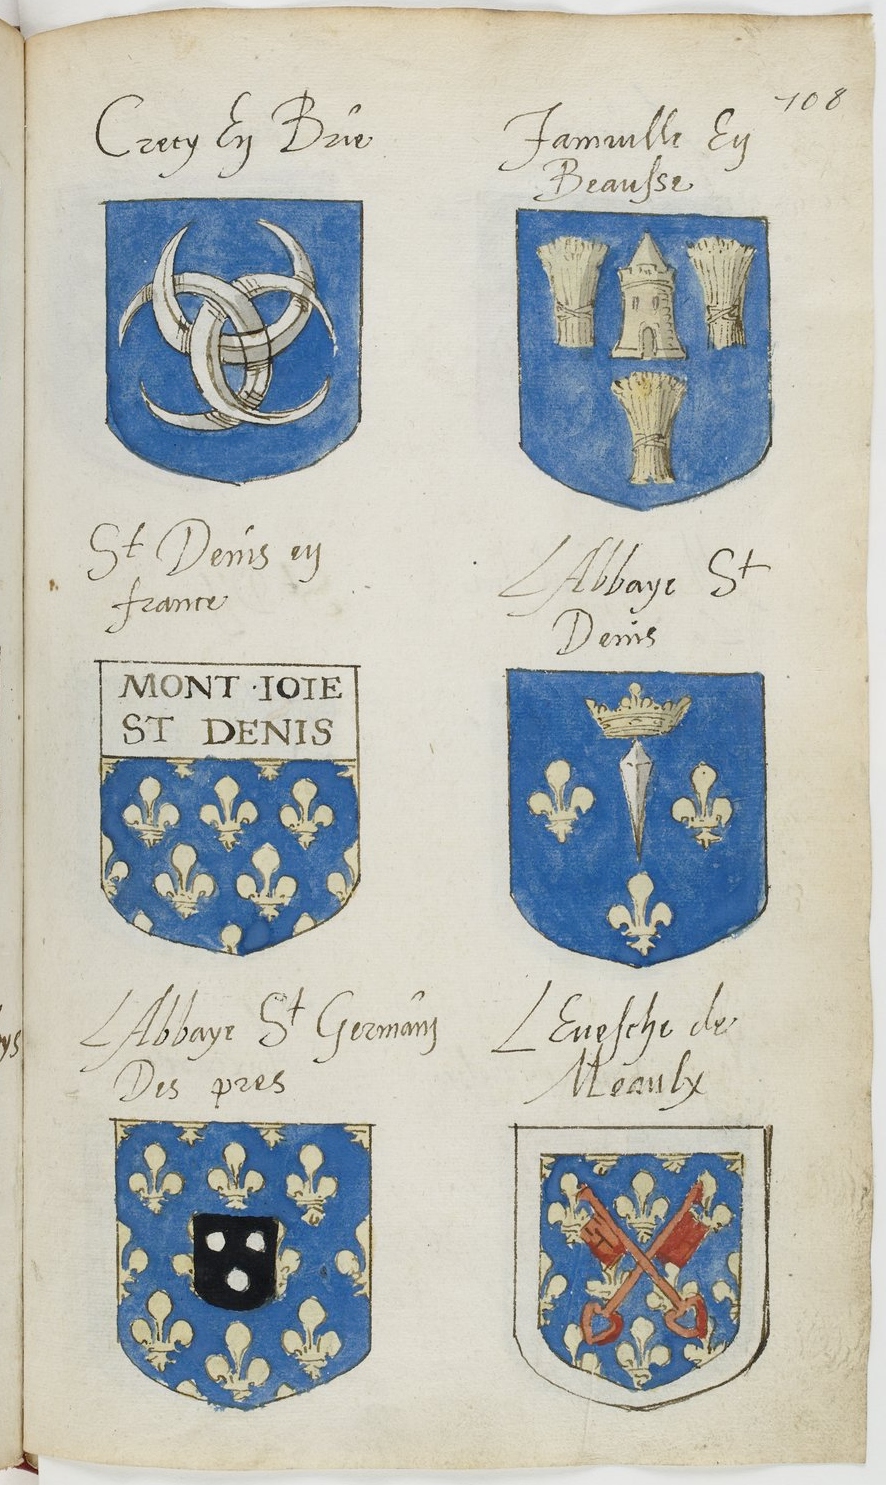 108
Crecy En Brie
Jamville En
Beausse
St Denis en
france
L'Abbaye St
Denis
MONT·IOIE
ST DENIS
L'Abbaye St Germain
Des pres
L Evesche de
Meaulx